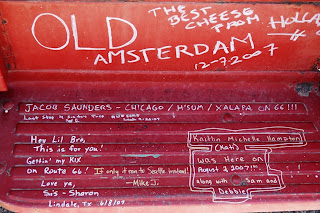 OLD
AMSTERDAM
THE
BEST
CHEESE
FROM
HOLLA
#
12-7-2007
JACOB SAUNDERS - CHICAGO / M'SUM / XALAPA ON 66!!!
Hey Lil Bro,
This is for you!
Gettin' my KIX
on ROUTE 66!
If only it ran to Seattle instead!
Love ya,
-Mike J.
Sis - Sharon
Lindale, Tx 6/8/07
Kaitlin Michelle Hampton
(Kati)
was Here on
August 2, 2007!!!
along with Sam and
Debbie